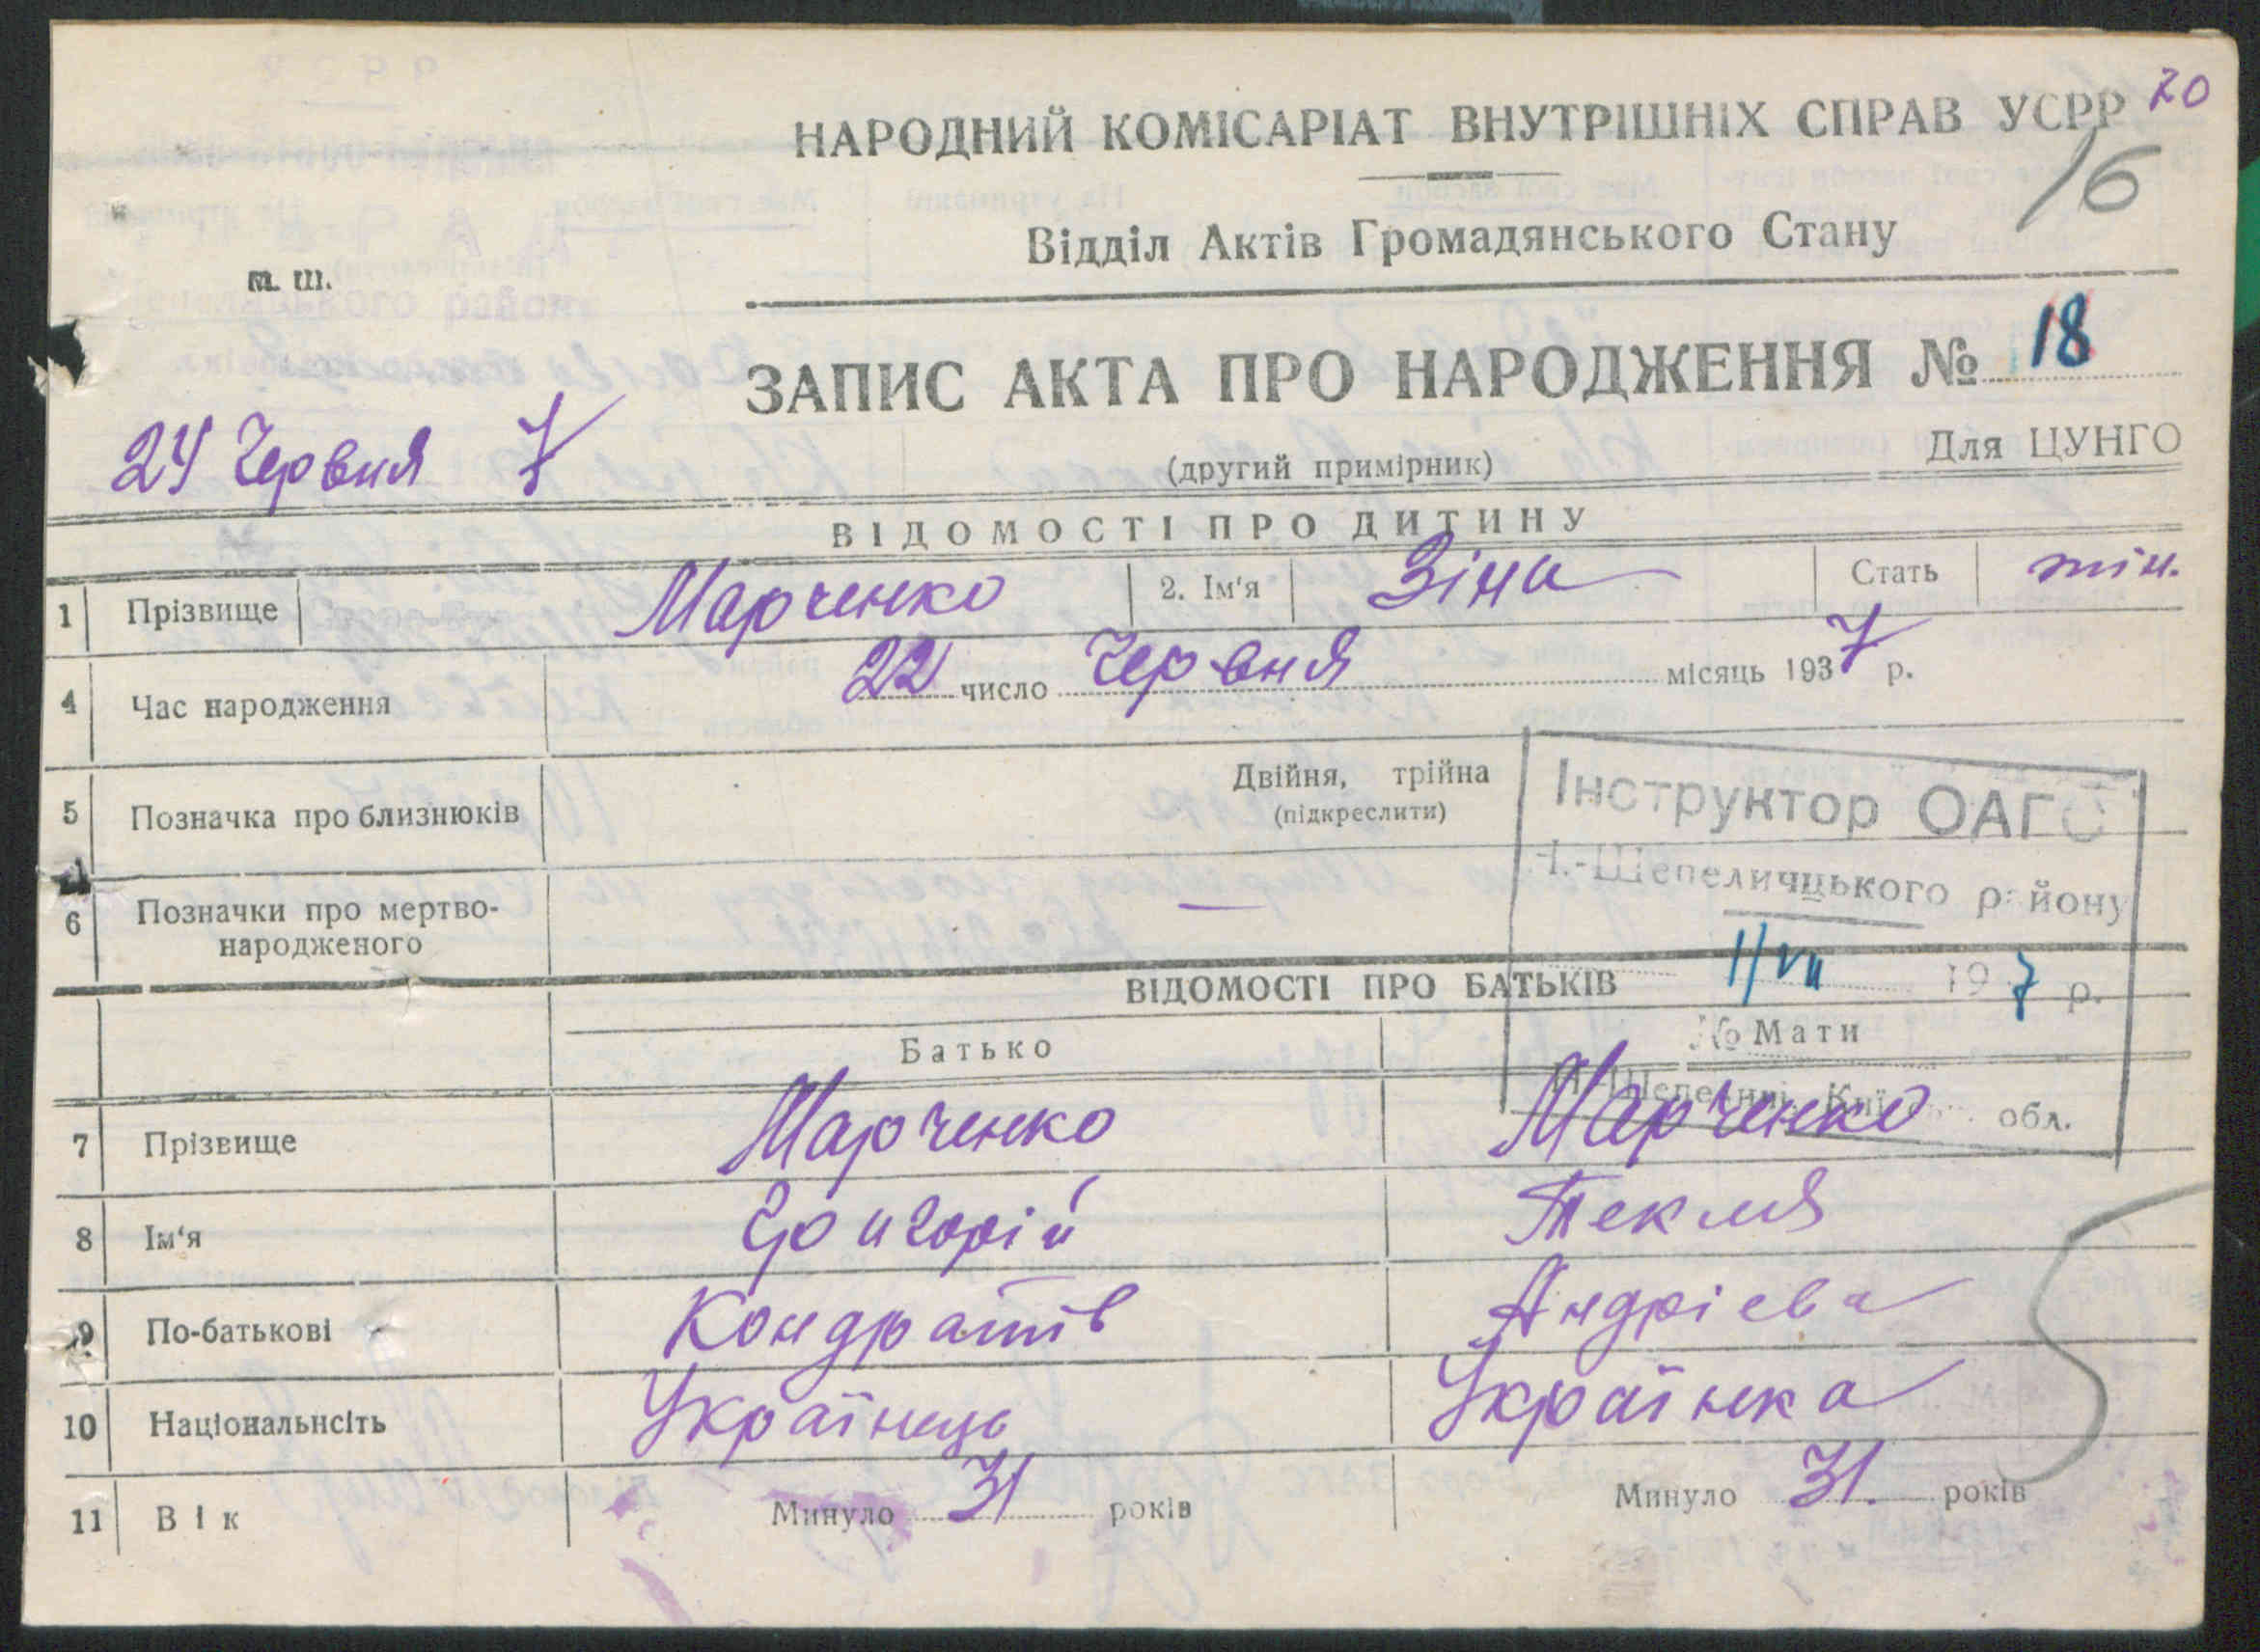 70
НАРОДНИЙ КОМІСАРІАТ ВНУТРІШНІХ СПРАВ УСРР
16
Відділ Актів Громадянського Стану
м. ш.
ЗАПИС АКТА ПРО НАРОДЖЕННЯ № 18
24 Червня 7
(другий примірник)
Для ЦУНГО
ВІДОМОСТІ ПРО ДИТИНУ
1 Прізвище Марченко 2. Ім'я Зіна Стать жін.
4 Час народження 22 число Червня місяць 1937 р.
5 Позначка про близнюків Двійня, трійна
(підкреслити)
Інструктор ОАГС
Шепеличцького району
6 Позначки про мертво-
народженого —
1/VII 197 р.
ВІДОМОСТІ ПРО БАТЬКІВ
№
Батько Мати
обл.
7 Прізвище Марченко Марченко
8 Ім'я Григорій Текля
9 По-батькові Кондратів Андрієва
10 Національнсіть Українець Українка
11 Вік Минуло 31 років Минуло 31. років